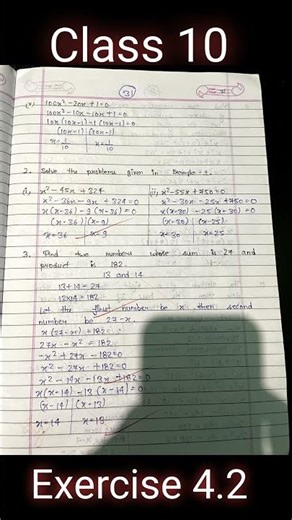 Class 10
(31)
(v) 100x² - 20x + 1 = 0
100x² - 10x - 10x + 1 = 0
10x (10x-1) -1 (10x-1) = 0
(10x-1) (10x-1)
x = 1/10 x = 1/10
2. Solve the problems given in Example 1.
(i) x² - 45x + 324 (ii) x² - 55x + 750 = 0
x² - 36x - 9x + 324 = 0 x² - 30x - 25x + 750 = 0
x (x-36) - 9 (x-36) = 0 x (x-30) - 25 (x-30) = 0
(x-36) (x-9) (x-30) (x-25)
x = 36 x = 9 x = 30 x = 25
3. Find two numbers whose sum is 27 and
product is 182.
13 and 14
13 + 14 = 27
13×14 = 182
Let the first number be x then second
number be 27-x.
x (27-x) = 182
27x - x² = 182
-x² + 27x - 182 = 0
x² - 27x + 182 = 0
x² - 14x - 13x + 182 = 0
x (x-14) - 13 (x-14) = 0
(x-14) (x-13)
x = 14 x = 13
Exercise 4.2